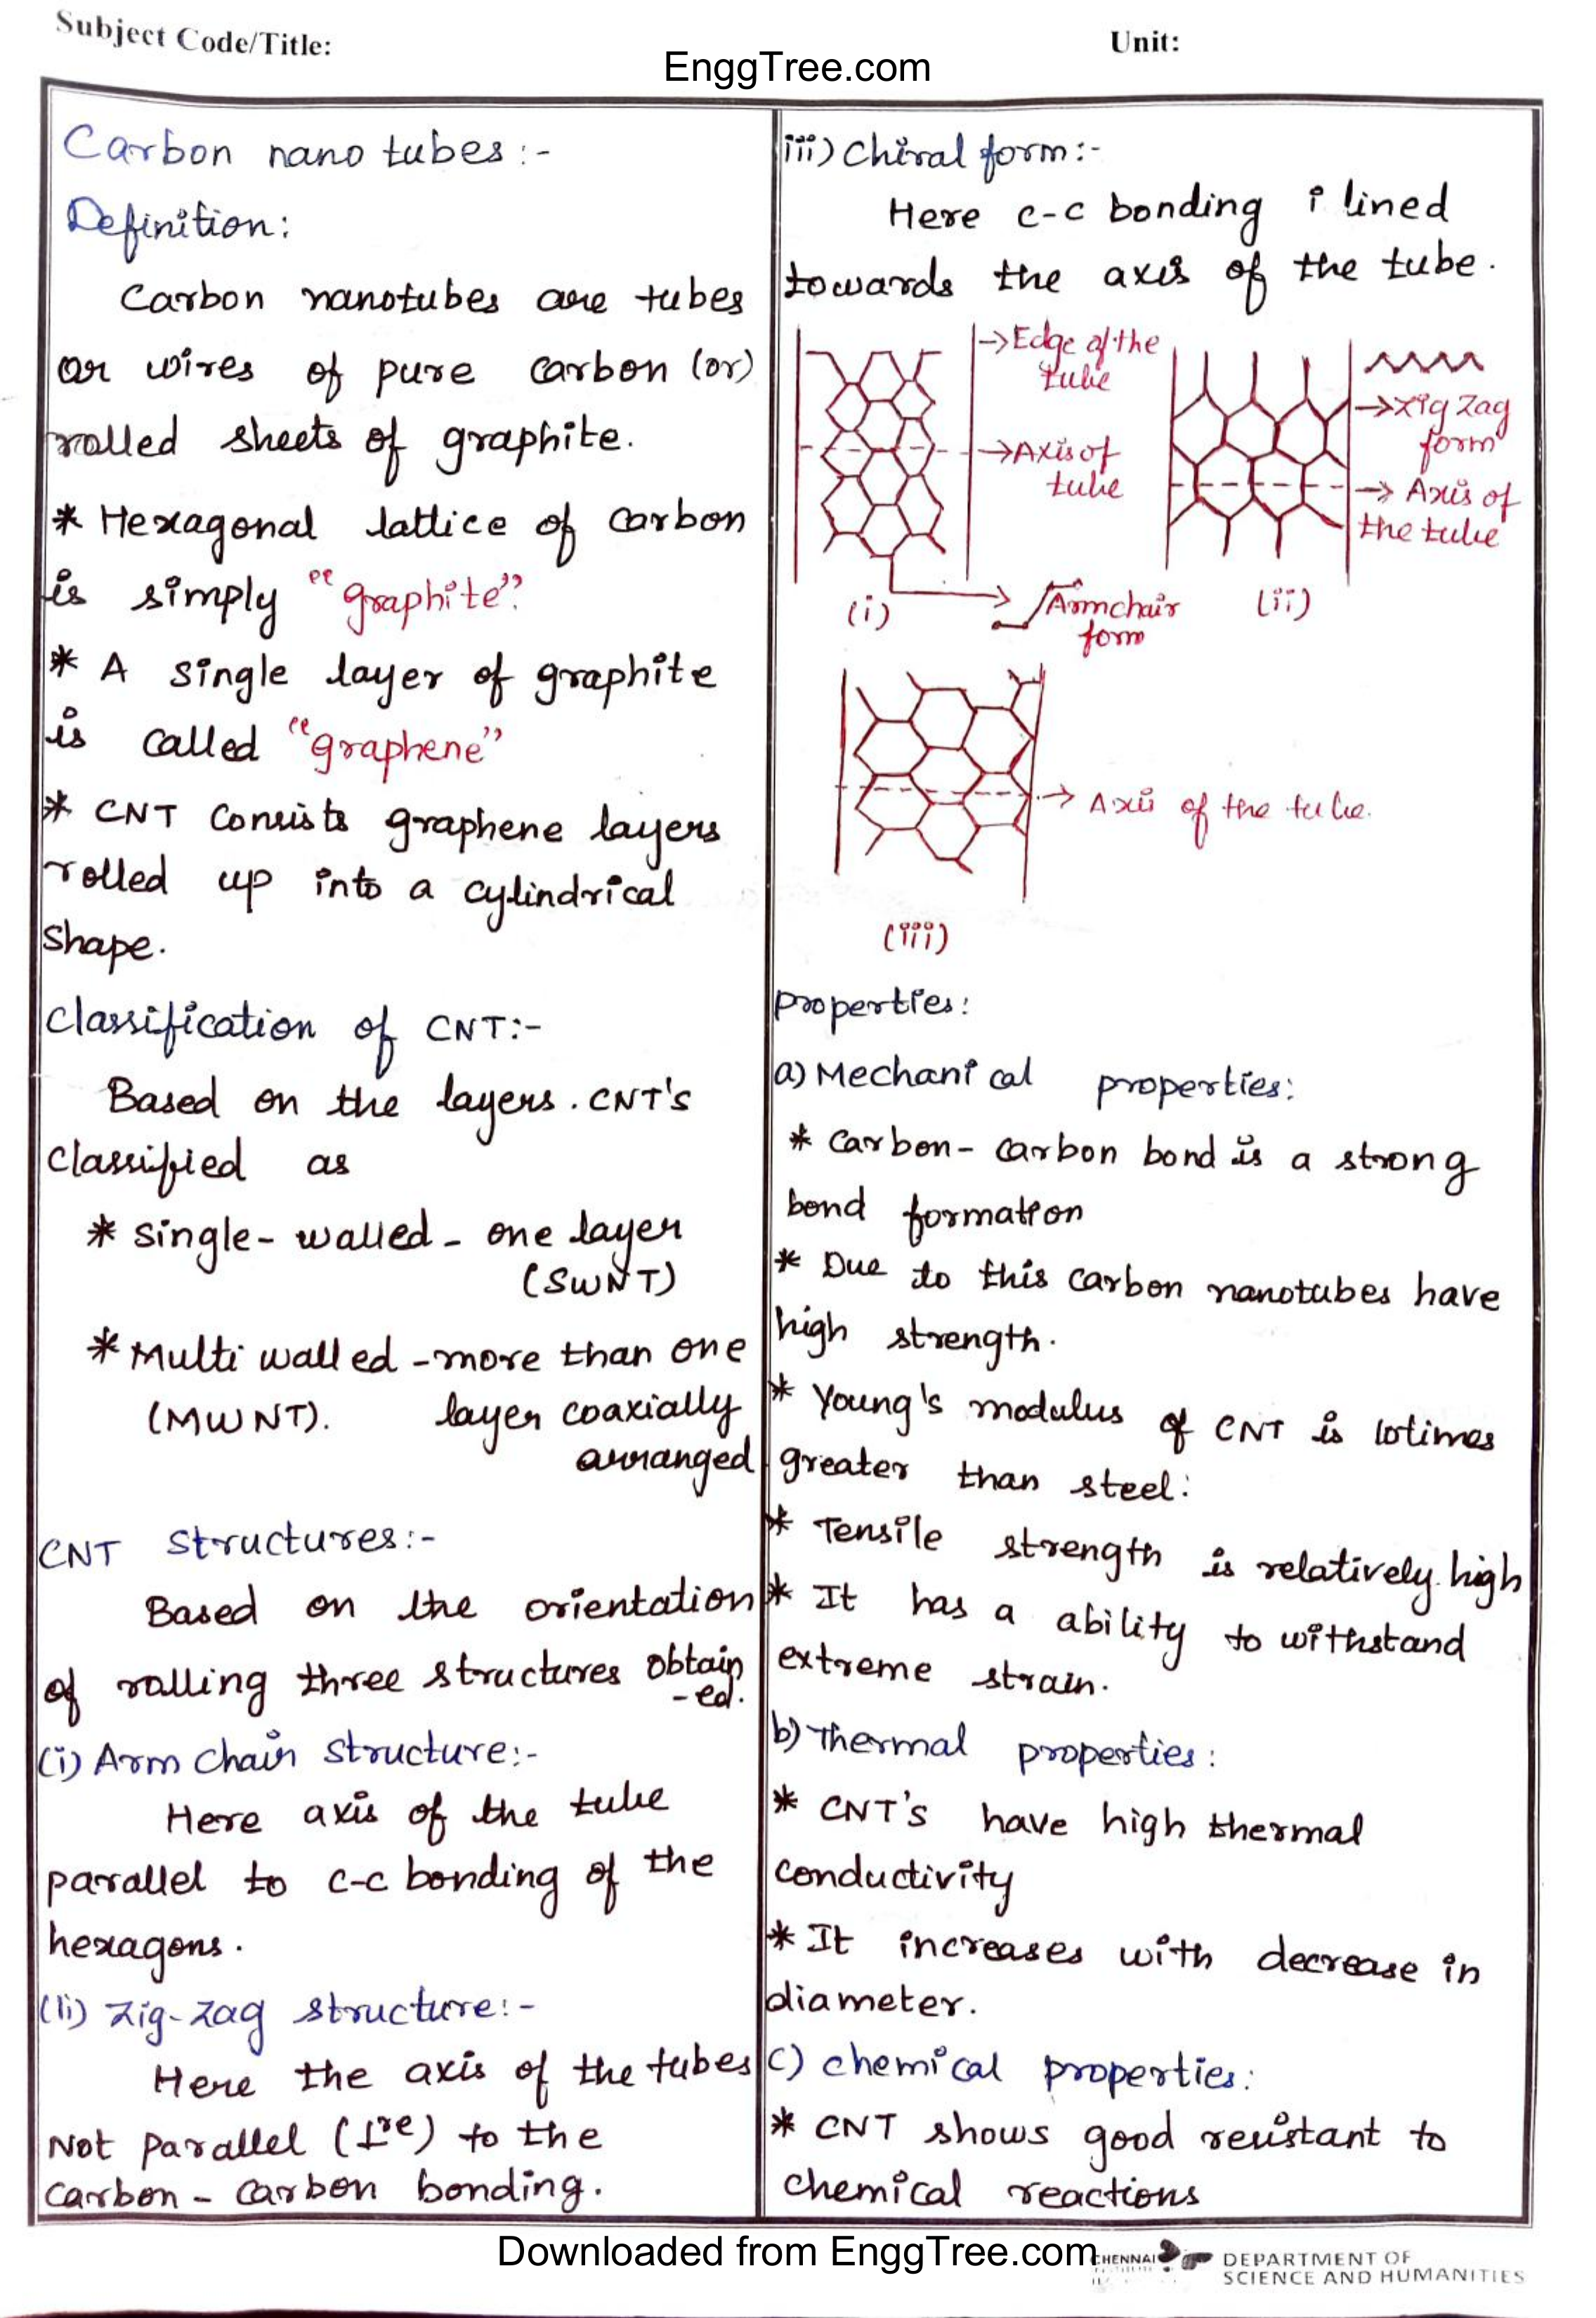 Subject Code/Title:
Unit:
EnggTree.com
Carbon nano tubes:-
Definition:
Carbon nanotubes are tubes
or wires of pure carbon (or)
rolled sheets of graphite.
* Hexagonal lattice of carbon
is simply "graphite".
* A single layer of graphite
is called "graphene"
* CNT Consists graphene layers
rolled up into a cylindrical
shape.
Classification of CNT:-
Based on the layers. CNT's
classified as
* single-walled - one layer
(SWNT)
* Multi walled - more than one
(MWNT). layer coaxially
arranged
CNT structures:-
Based on the orientation
of rolling three structures obtain
-ed.
(i) Arm chair structure:-
Here axis of the tube
parallel to c-c bonding of the
hexagons.
(ii) Zig-zag structure:-
Here the axis of the tubes
Not parallel (⊥re) to the
carbon - carbon bonding.
iii) Chiral form:-
Here c-c bonding i lined
towards the axis of the tube.
→ Edge of the
tube
→ Axis of
tube
(i)
Armchair
form
→ zig zag
form
→ Axis of
the tube
(ii)
→ Axis of the tube.
(iii)
properties:
a) Mechanical properties:
* Carbon - carbon bond is a strong
bond formation
* Due to this carbon nanotubes have
high strength.
* Young's modulus of CNT is 10times
greater than steel:
* Tensile strength is relatively. high
* It has a ability to withstand
extreme strain.
b) Thermal properties:
* CNT's have high thermal
conductivity
* It increases with decrease in
diameter.
c) chemical properties:
* CNT shows good resistant to
chemical reactions
Downloaded from EnggTree.com
CHENNAI
DEPARTMENT OF
SCIENCE AND HUMANITIES